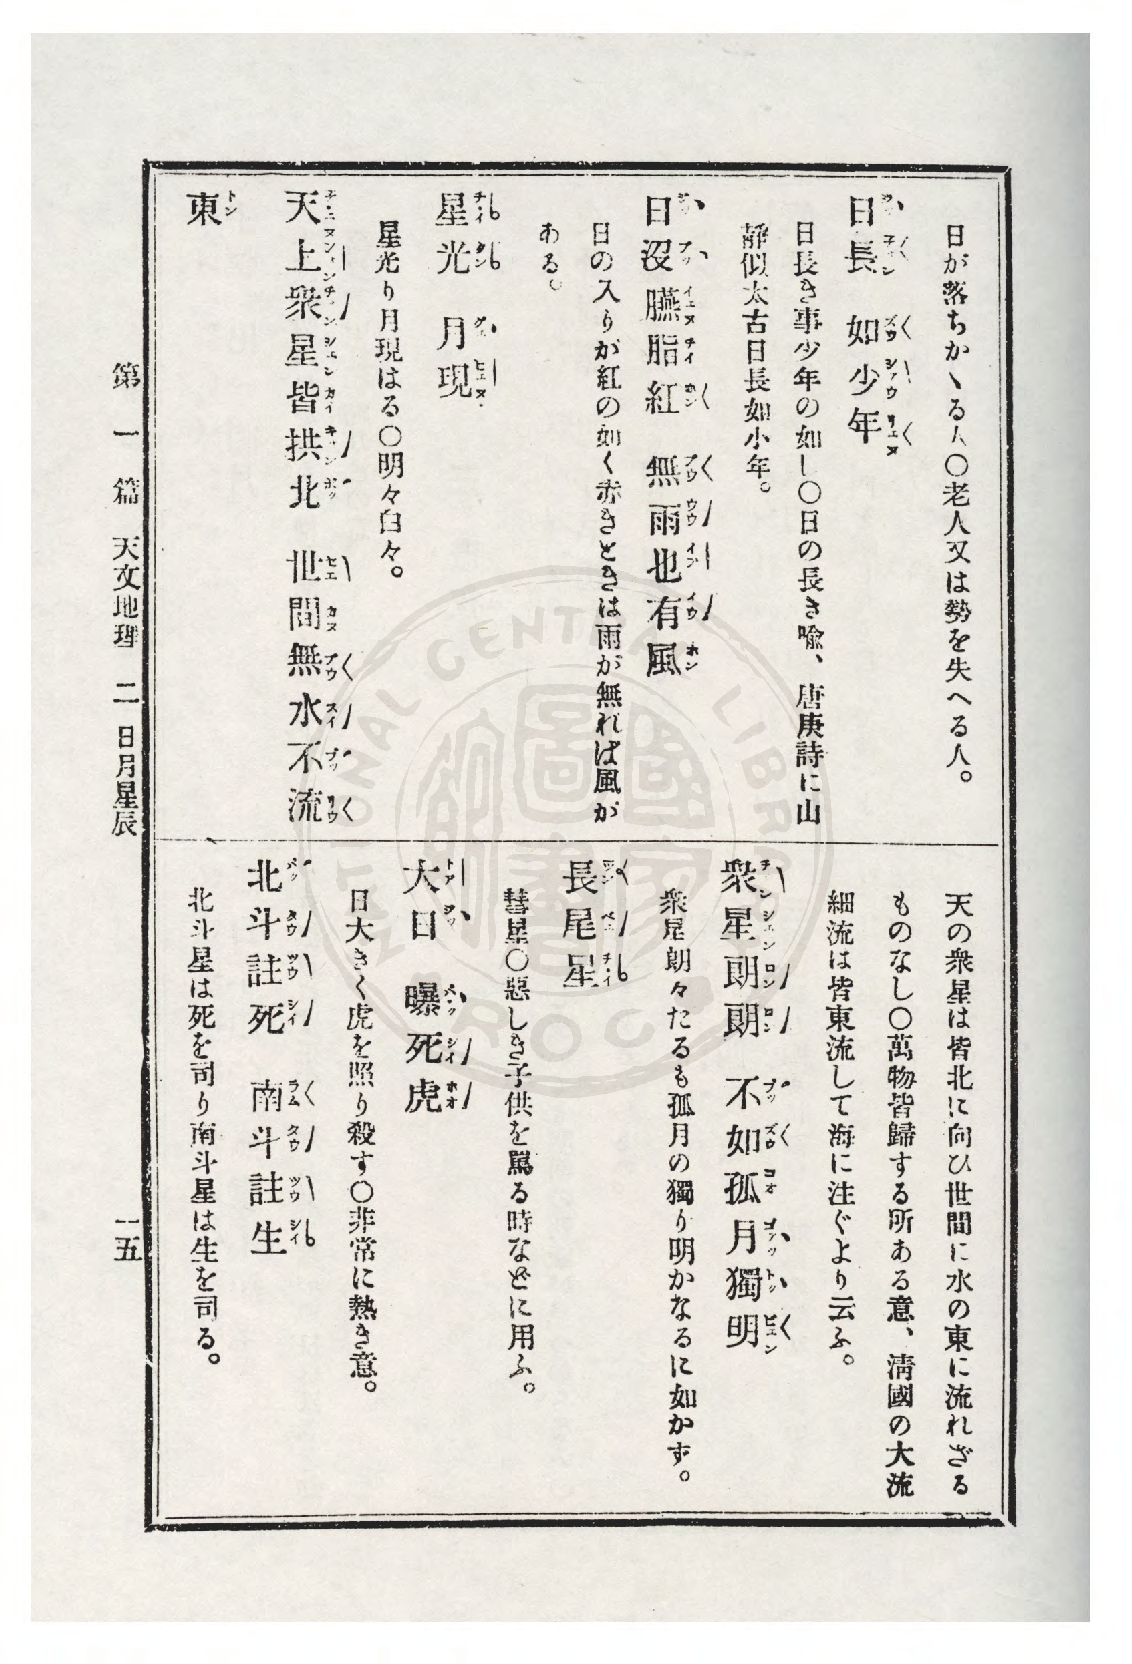 日が落ちかゝる人〇老人又は勢を失へる人。
日長 如少年
日長き事少年の如し〇日の長き喩、唐庚詩に山
靜似太古日長如小年。
日沒臙脂紅 無雨也有風
日の入りが紅の如く赤きときは雨が無れば風が
ある。
星光 月現
星光り月現はる〇明々白々。
天上衆星皆拱北 世間無水不流
東
天の衆星は皆北に向ひ世間に水の東に流れざる
ものなし〇萬物皆歸する所ある意、淸國の大流
細流は皆東流して海に注ぐより云ふ。
衆星朗朗 不如孤月獨明
衆星朗々たるも孤月の獨り明かなるに如かず。
長尾星
彗星〇惡しき子供を罵る時などに用ふ。
大日 曝死虎
日大きく虎を照り殺す〇非常に熱き意。
北斗註死 南斗註生
北斗星は死を司り南斗星は生を司る。
第一篇 天文地理 二 日月星辰
一五
NATIONAL CENTRAL LIBRARY
R.O.C.